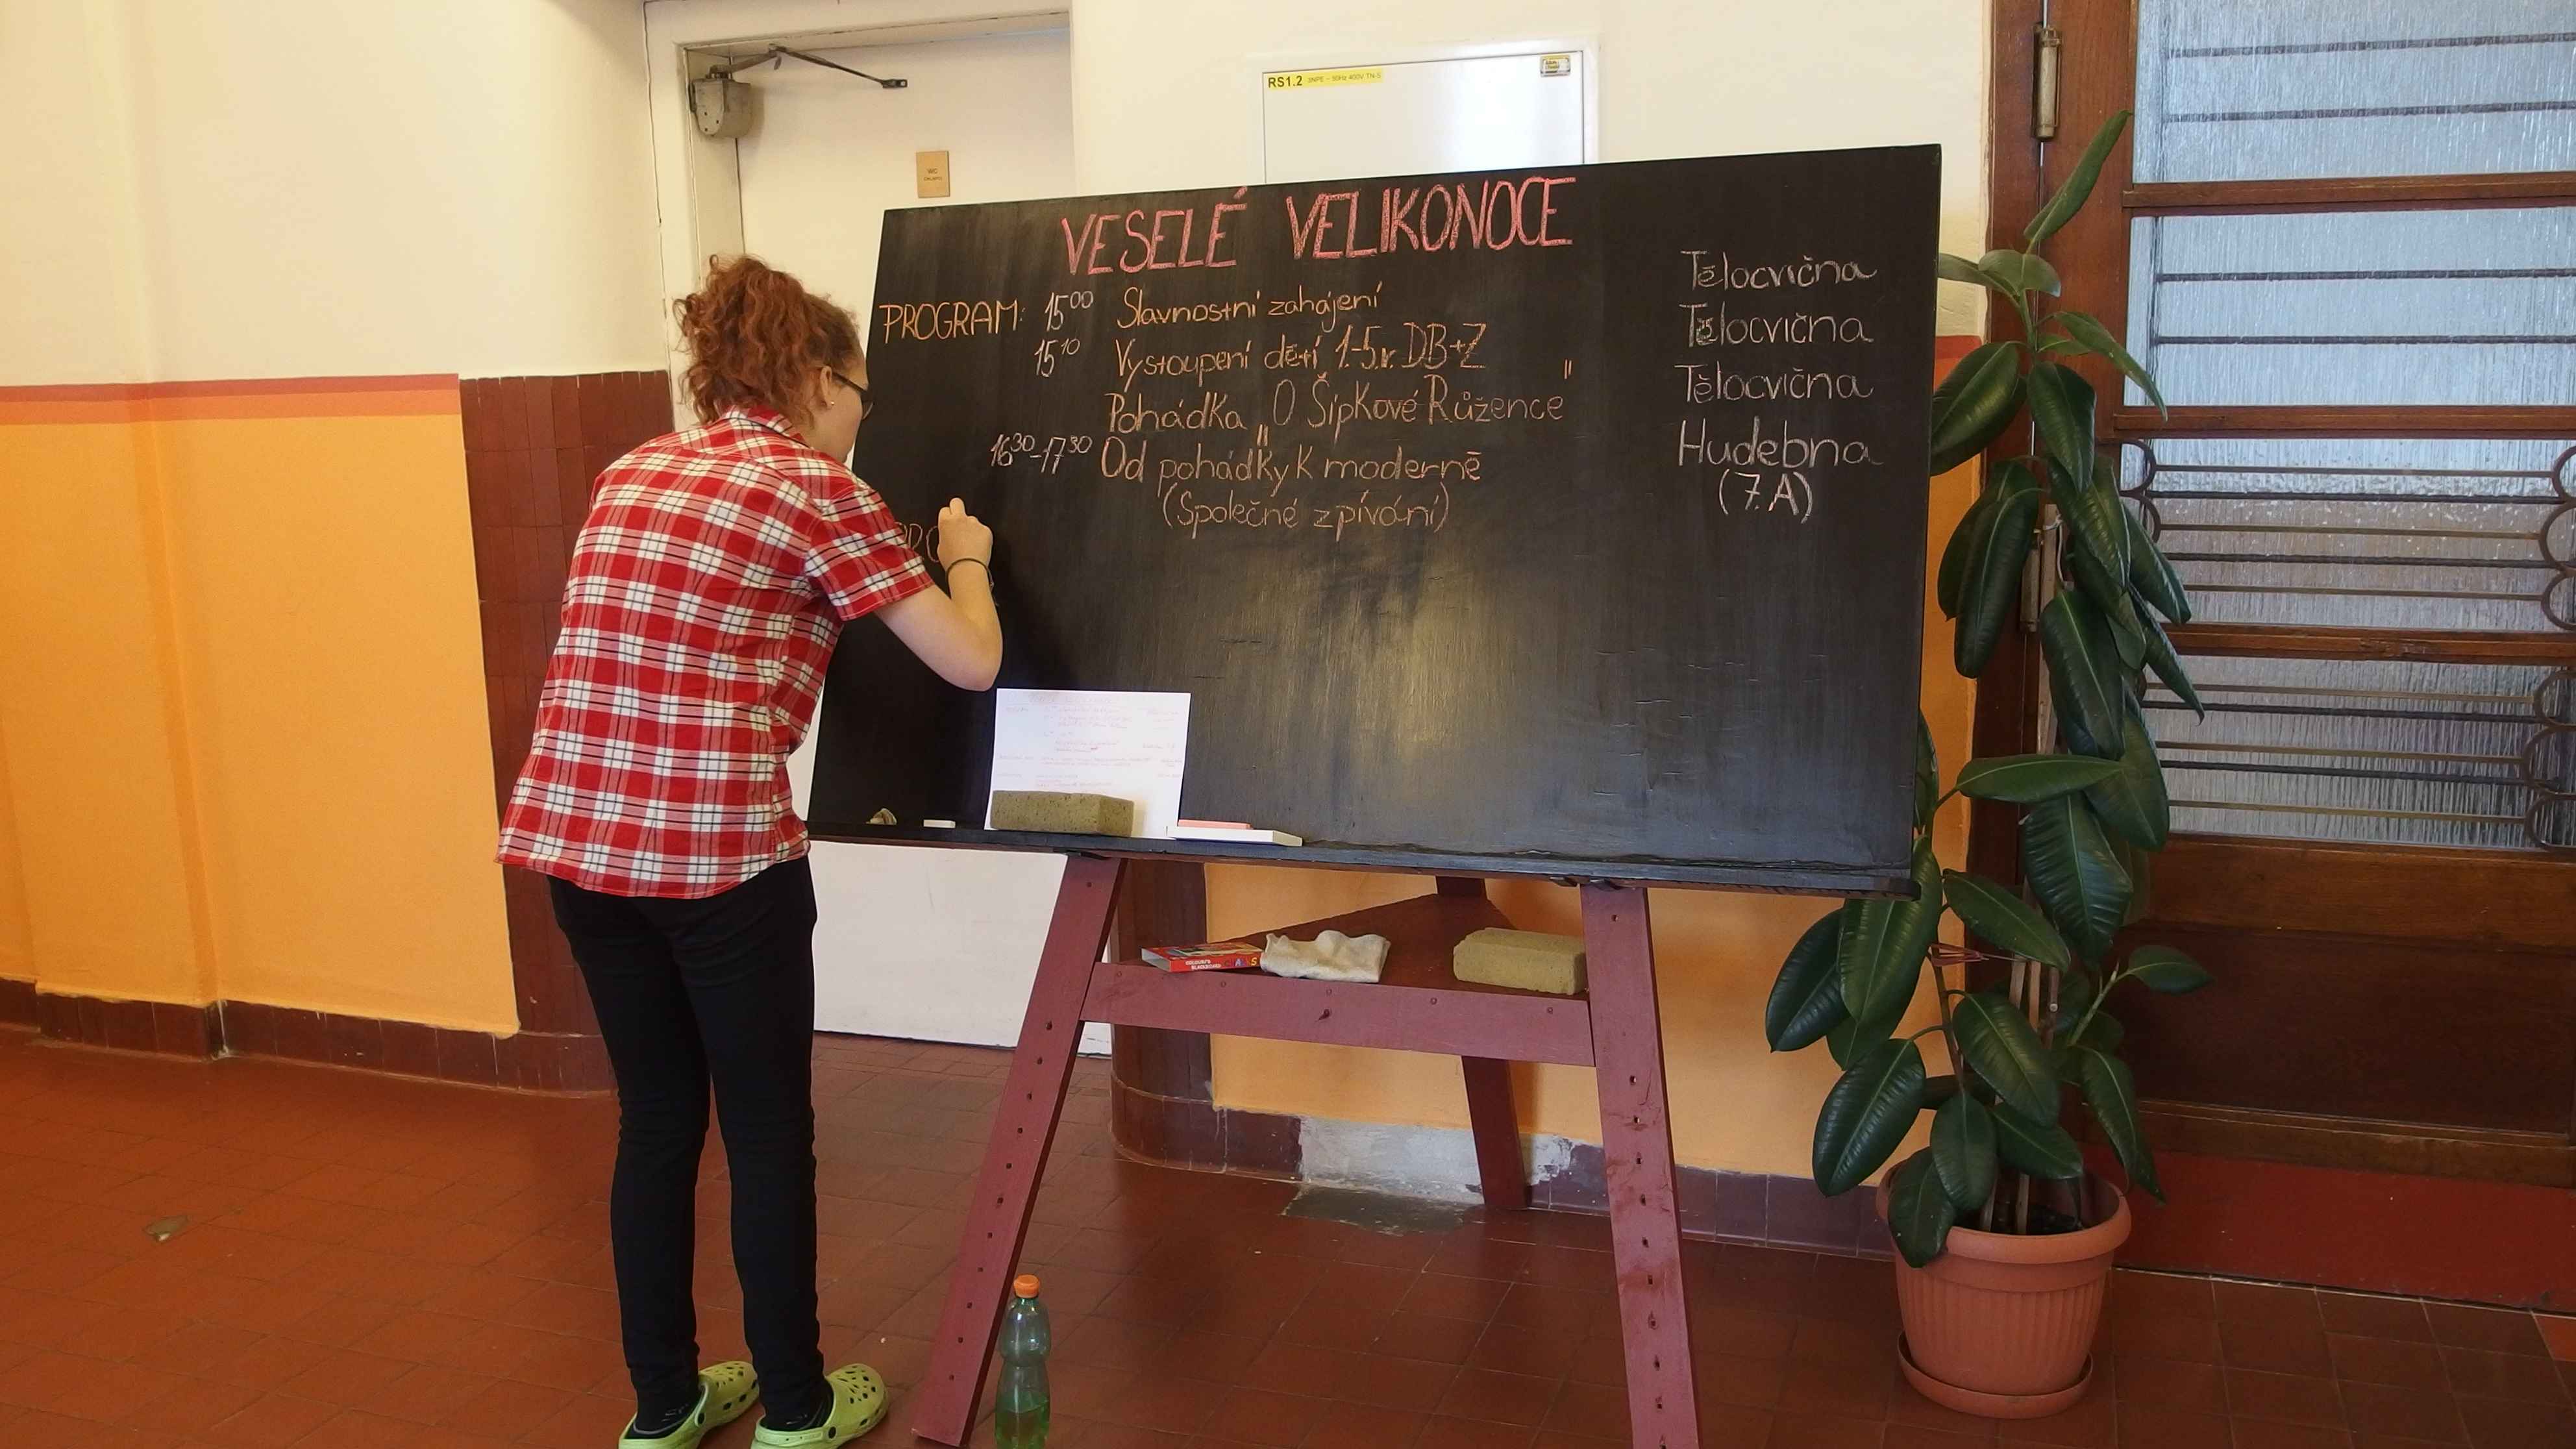 RS1.2 3NPE ~ 50Hz 400V TN-S
WC
VESELÉ VELIKONOCE
PROGRAM: 15⁰⁰ Slavnostní zahájení Tělocvična
15¹⁰ Vystoupení dětí 1.-5.r. DB+Z Tělocvična
Pohádka „O Šípkové Růžence" Tělocvična
16³⁰-17³⁰ Od pohádky k moderně Hudebna
(Společné zpívání) (7.A)